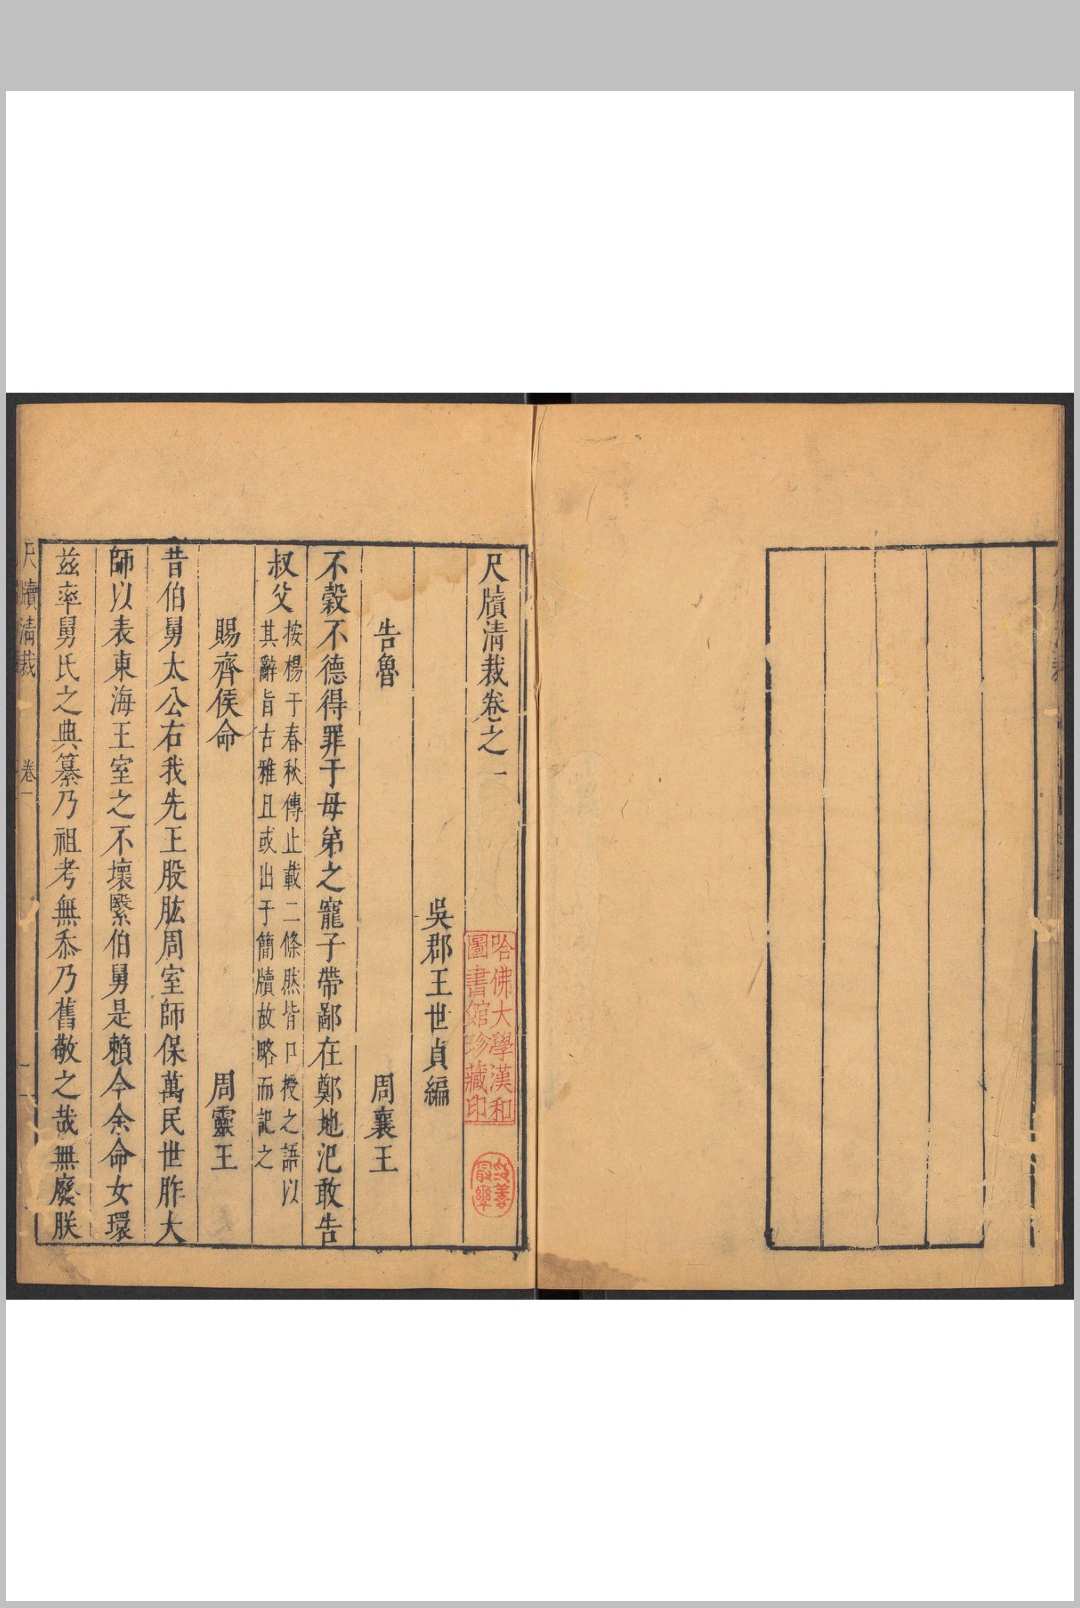 尺牘清裁卷之一
吳郡王世貞編
告魯 周襄王
不穀不德得罪于母弟之寵子帶鄙在鄭地氾敢告
叔父
按楊于春秋傳止載二條然皆口授之語以
其辭旨古雅且或出于簡牘故略而記之
賜齊侯命 周靈王
昔伯舅太公右我先王股肱周室師保萬民世胙大
師以表東海王室之不壞繄伯舅是賴今余命女環
茲率舅氏之典纂乃祖考無忝乃舊敬之哉無廢朕
尺牘清裁 卷一
哈佛大學漢和
圖書館珍藏印